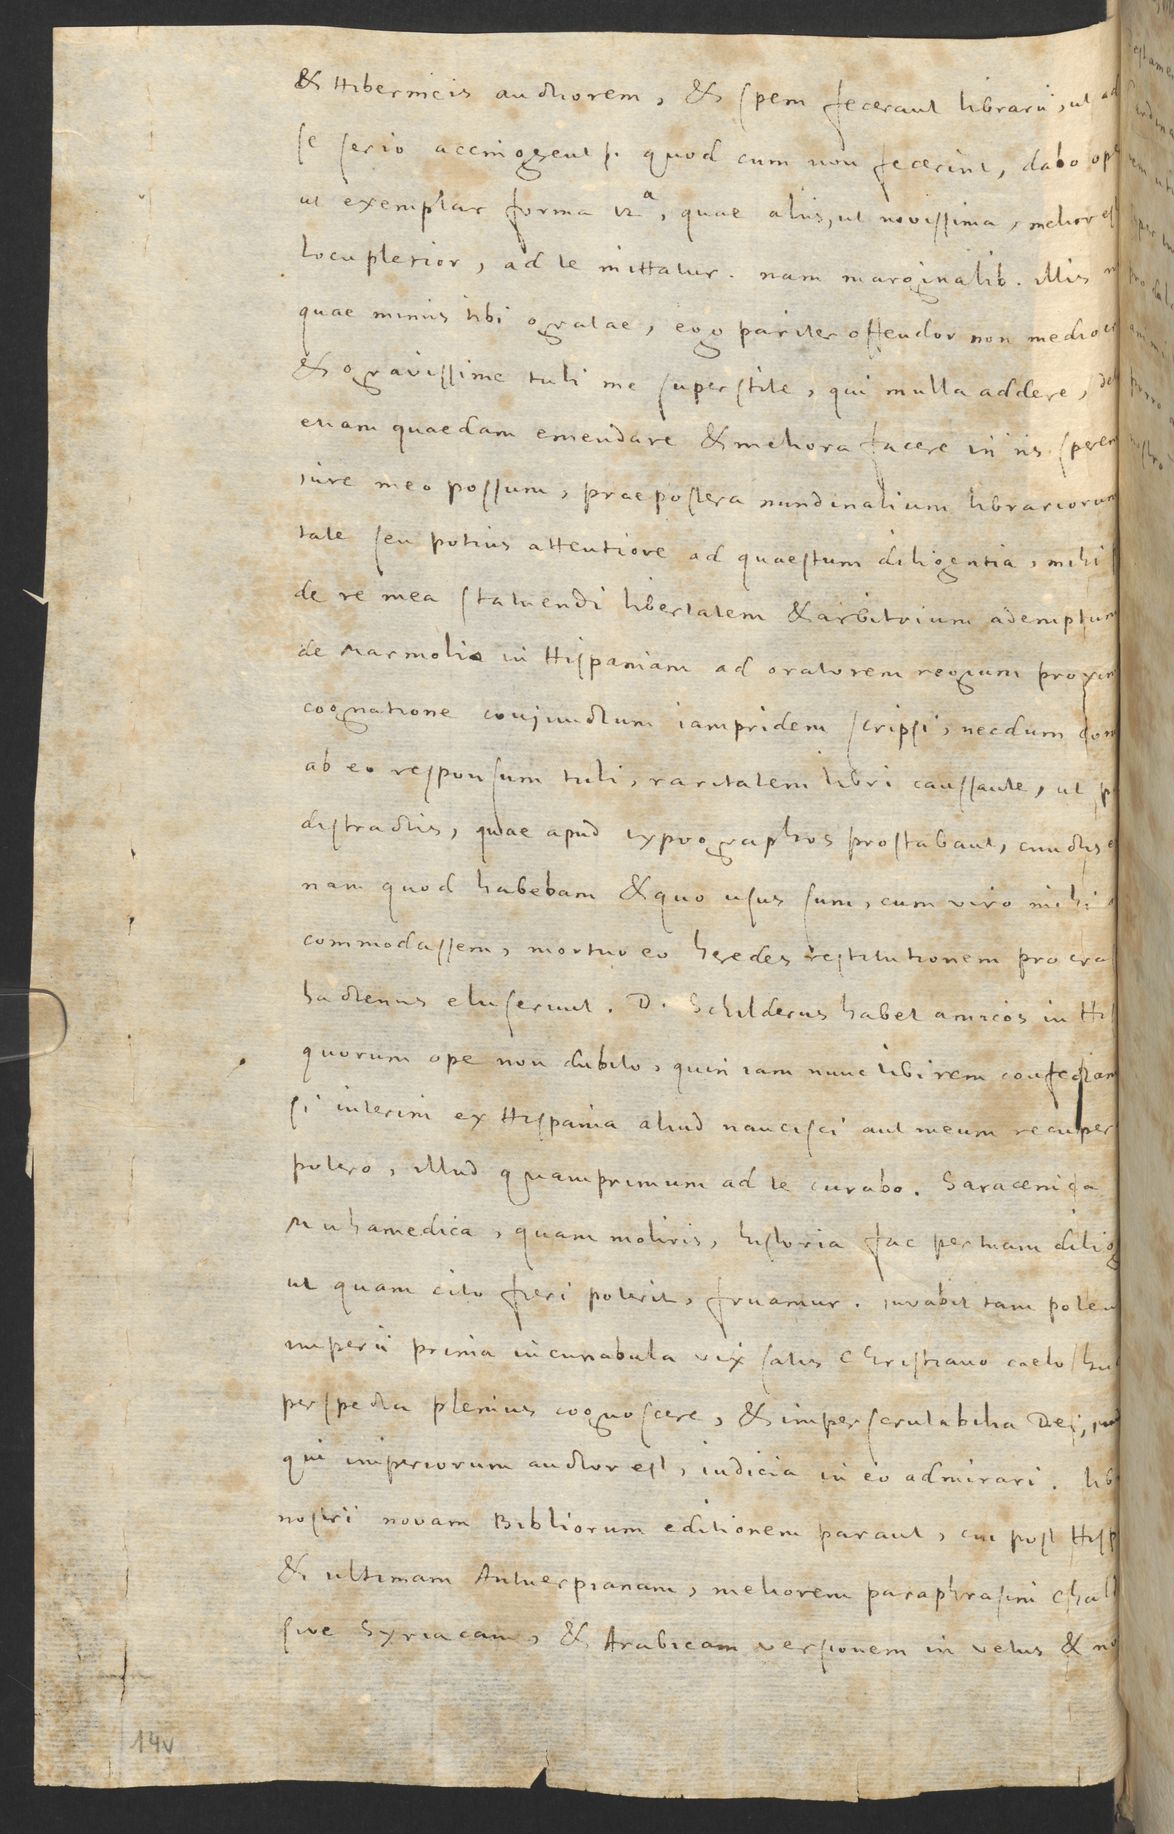 & Hibernicis auctiorem, & spem fecerant librarii, ut ad
se serio accingerent. quod cum non fecerint, dabo op
ut exemplar forma 12a, quae aliis, ut novissima, melior est
locupletior, ad te mittatur. nam marginalib. illis n
quae minus tibi gratae, ego pariter offendor non medioc
& gravissime tuli me superstite, qui multa addere, de
etiam quaedam emendare & meliora facere in iis
iure meo possum, praepostera nundinalium librariorum
tate seu potius attentiore ad quaestum diligentia, mihi
de re mea statuendi libertatem & arbitrium ademptum
de Marmolio in Hispaniam ad oratorem regium proxim
cognatione conjunctum iampridem scripsi, necdum
ab eo responsum tuli, raritatem libri caussante, ut p
distractis, quae apud typographos prostabant, cunctis e
nam quod habebam & quo usus sum, cum viro mihi
commodassem, mortuo eo heredes restitutionem procras
hactenus eluserunt. D. Schilderus habet amicos in His
quorum ope non dubito, quin iam nunc tibi rem confectam
si interim ex Hispania aliud nancisci aut meum recuper
potero, illud quamprimum ad te curabo. Saracenica
Muhamedica, quam moliris, historia fac per tuam dilig
ut quam cito fieri poterit, fruamur. iuvabit tam poten
imperii prima incunabula vix satis Christiano caelo huc
perspecta plenius cognoscere, & imperscrutabilia Dei,
qui imperiorum auctor est, iudicia in eo admirari. lib
nostri novam Bibliorum editionem parant, cui post Hisp
& ultimam Antuerpianam, meliorem paraphrasim Chald
sive Syriacam, & Arabicam versionem in vetus & no
14v